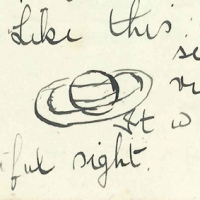 Like this:
It w
ful sight.